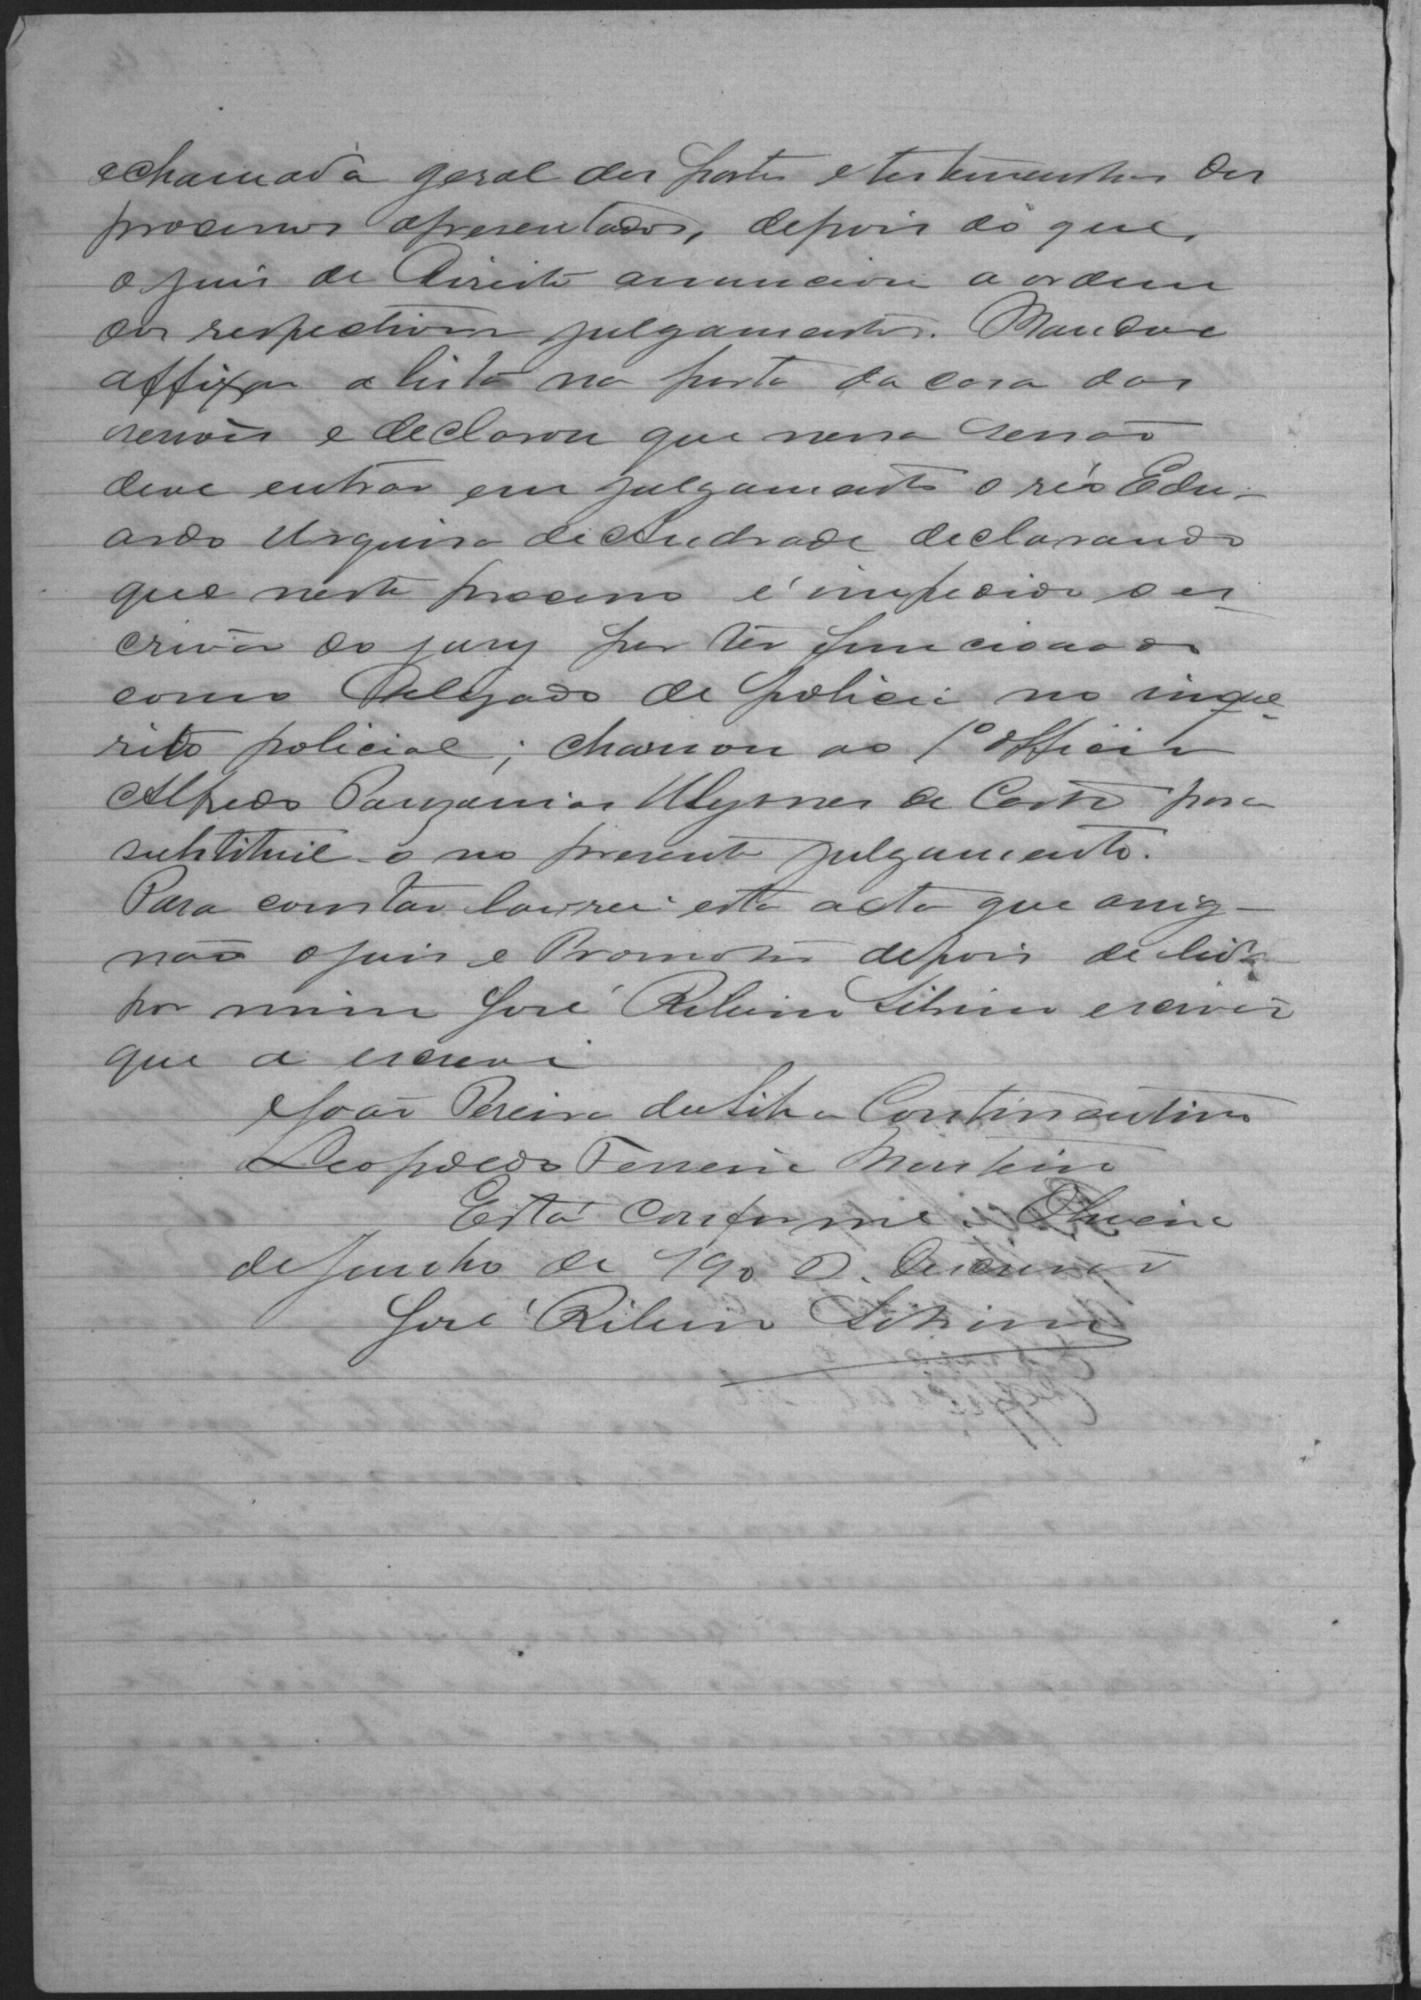 a chamada geral das partes e testemunhas dos
processos apresentados, depois do que,
o juis de Direito annunciou a ordem
dos respectivos julgamentos. Mandou
affixar a lista na porta da casa das
sessões e declarou que nessa sessão
deve entrar em julgamento o réo Edu-
ardo Urquisa de Andrade declarando
que neste processo é impedido o es-
crivão do jury por ter funccionado
como Delegado de policia no inque-
rito policial; chamou ao 1º officio
Alfredo Ulysses da Costa para
substituil-o no presente julgamento.
Para constar lavrei esta acta que assig-
não o juis e Promotor depois de lida
por mim José Ribeiro escrivão
que a escrevi
João Pereira da Silva Continentino
Leopoldo Ferreira Monteiro
Está conforme. Oliveira
de Junho de 190 O escrivão
José Ribeiro